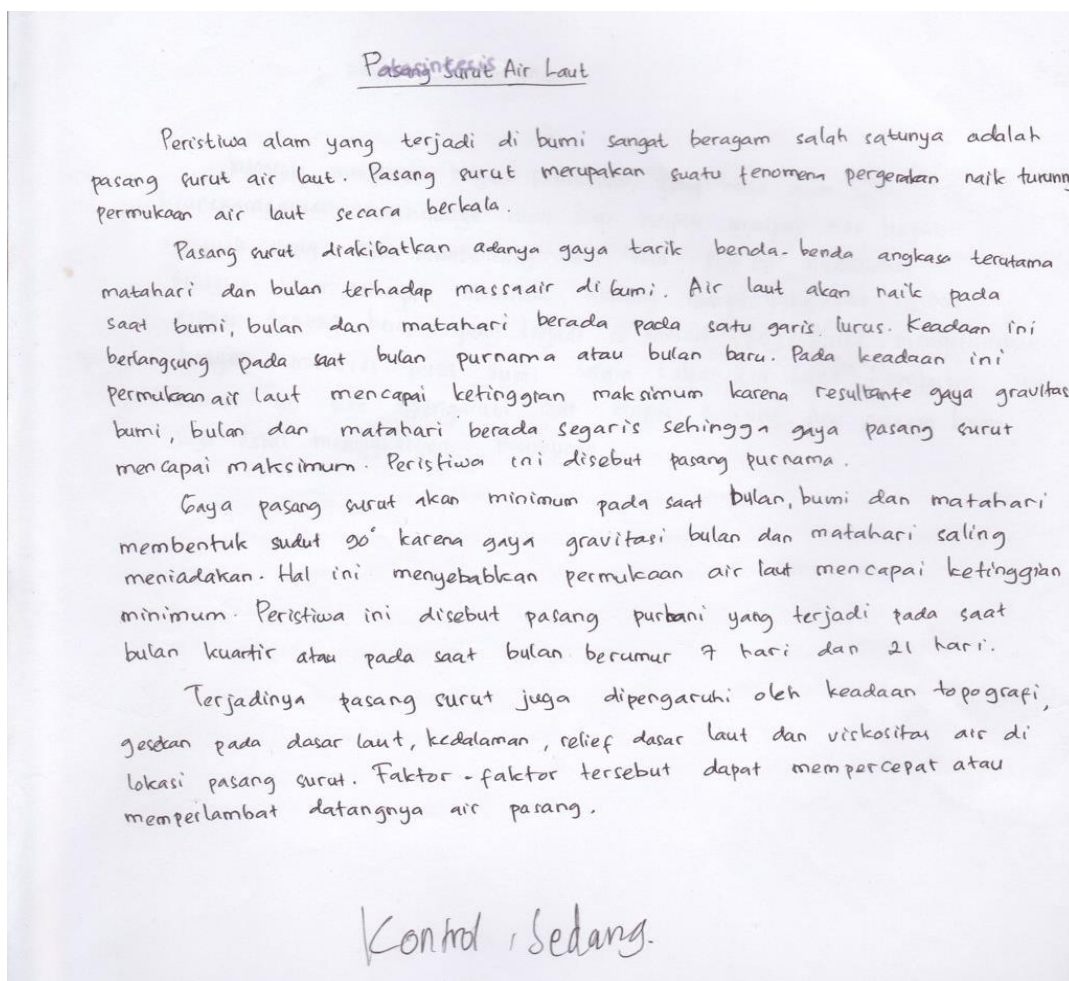 Pasang Surut Air Laut
Peristiwa alam yang terjadi di bumi sangat beragam salah satunya adalah
pasang surut air laut. Pasang surut merupakan suatu fenomena pergerakan naik turunn
permukaan air laut secara berkala.
Pasang surut diakibatkan adanya gaya tarik benda-benda angkasa terutama
matahari dan bulan terhadap massaair di bumi. Air laut akan naik pada
saat bumi, bulan dan matahari berada pada satu garis lurus. Keadaan ini
berlangsung pada saat bulan purnama atau bulan baru. Pada keadaan ini
permukaan air laut mencapai ketinggian maksimum karena resultante gaya gravitas
bumi, bulan dan matahari berada segaris sehingga gaya pasang surut
mencapai maksimum. Peristiwa ini disebut pasang purnama.
Gaya pasang surut akan minimum pada saat bulan, bumi dan matahari
membentuk sudut 90° karena gaya gravitasi bulan dan matahari saling
meniadakan. Hal ini menyebabkan permukaan air laut mencapai ketinggian
minimum. Peristiwa ini disebut pasang purbani yang terjadi pada saat
bulan kuartir atau pada saat bulan berumur 7 hari dan 21 hari.
Terjadinya pasang surut juga dipengaruhi oleh keadaan topografi,
gesekan pada dasar laut, kedalaman, relief dasar laut dan viskositas air di
lokasi pasang surut. Faktor-faktor tersebut dapat mempercepat atau
memperlambat datangnya air pasang.
Kontrol, Sedang.